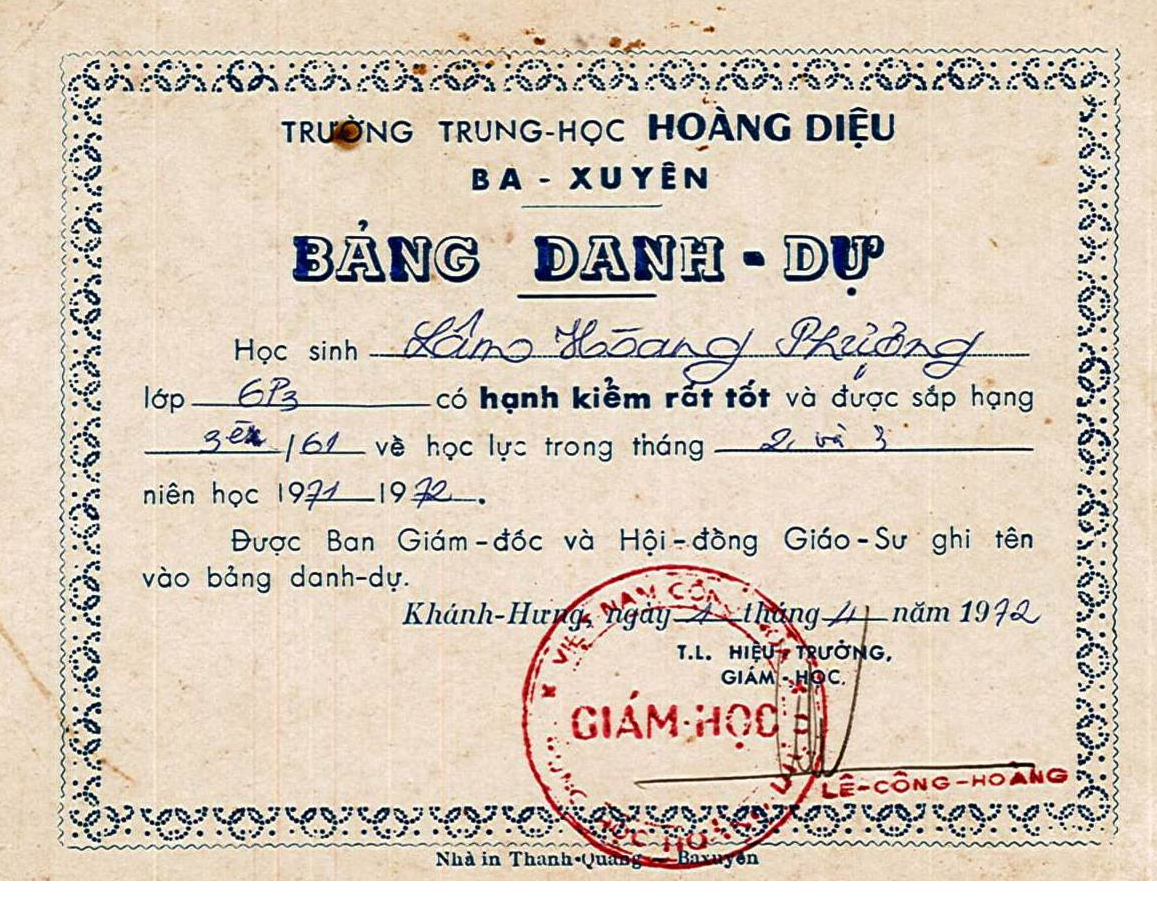 TRƯỜNG TRUNG-HỌC HOÀNG DIỆU
BA - XUYÊN
BẢNG DANH - DỰ
Học sinh Lâm Hoàng Phượng
lớp 6P3 có hạnh kiểm rất tốt và được sắp hạng
3 /61 về học lực trong tháng 2 và 3
niên học 1971 1972.
Được Ban Giám-đốc và Hội-đồng Giáo-Sư ghi tên
vào bảng danh-dự.
Khánh-Hưng, ngày 1 tháng 4 năm 1972
T.L. HIỆU-TRƯỞNG,
GIÁM-HỌC.
VIỆT NAM CỘNG
GIÁM-HỌC
LÊ-CÔNG-HOÀNG
Nhà in Thanh-Quang — Baxuyên